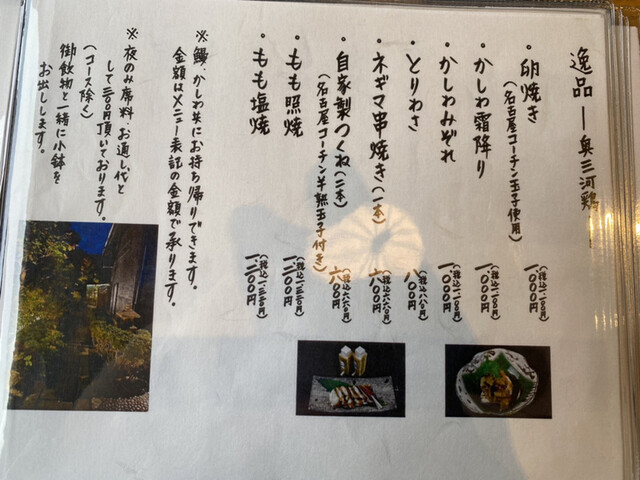 逸品 ー 奥三河鶏 ー
・卵焼き
(名古屋コーチン玉子使用)
一、〇〇〇円
(税込一、一〇〇円)
・かしわ霜降り
一、〇〇〇円
(税込一、一〇〇円)
・かしわみぞれ
一、〇〇〇円
(税込一、一〇〇円)
・とりわさ
八〇〇円
(税込八八〇円)
・ネギマ串焼き(一本)
六〇〇円
(税込六六〇円)
・自家製つくね(二本)
(名古屋コーチン半熟玉子付き)
六〇〇円
(税込六六〇円)
・もも照焼
一、二〇〇円
(税込一、三二〇円)
・もも塩焼
一、二〇〇円
(税込一、三二〇円)
※鰻、かしわ共にお持ち帰りできます。
金額はメニュー表記の金額で承ります。
※夜のみ席料・お通し代と
して三〇〇円頂いております。
(コース除く)
御飲物と一緒に小鉢を
お出しします。